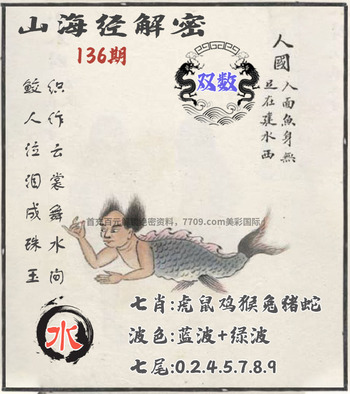 山海经解密
136期
双数
人國
人面魚身無
足在建水西
鲛人位泪成珠玉
织作云裳舞水间
密资料，7709.com美彩国际
水
七肖:虎鼠鸡猴兔猪蛇
波色:蓝波+绿波
七尾:0.2.4.5.7.8.9